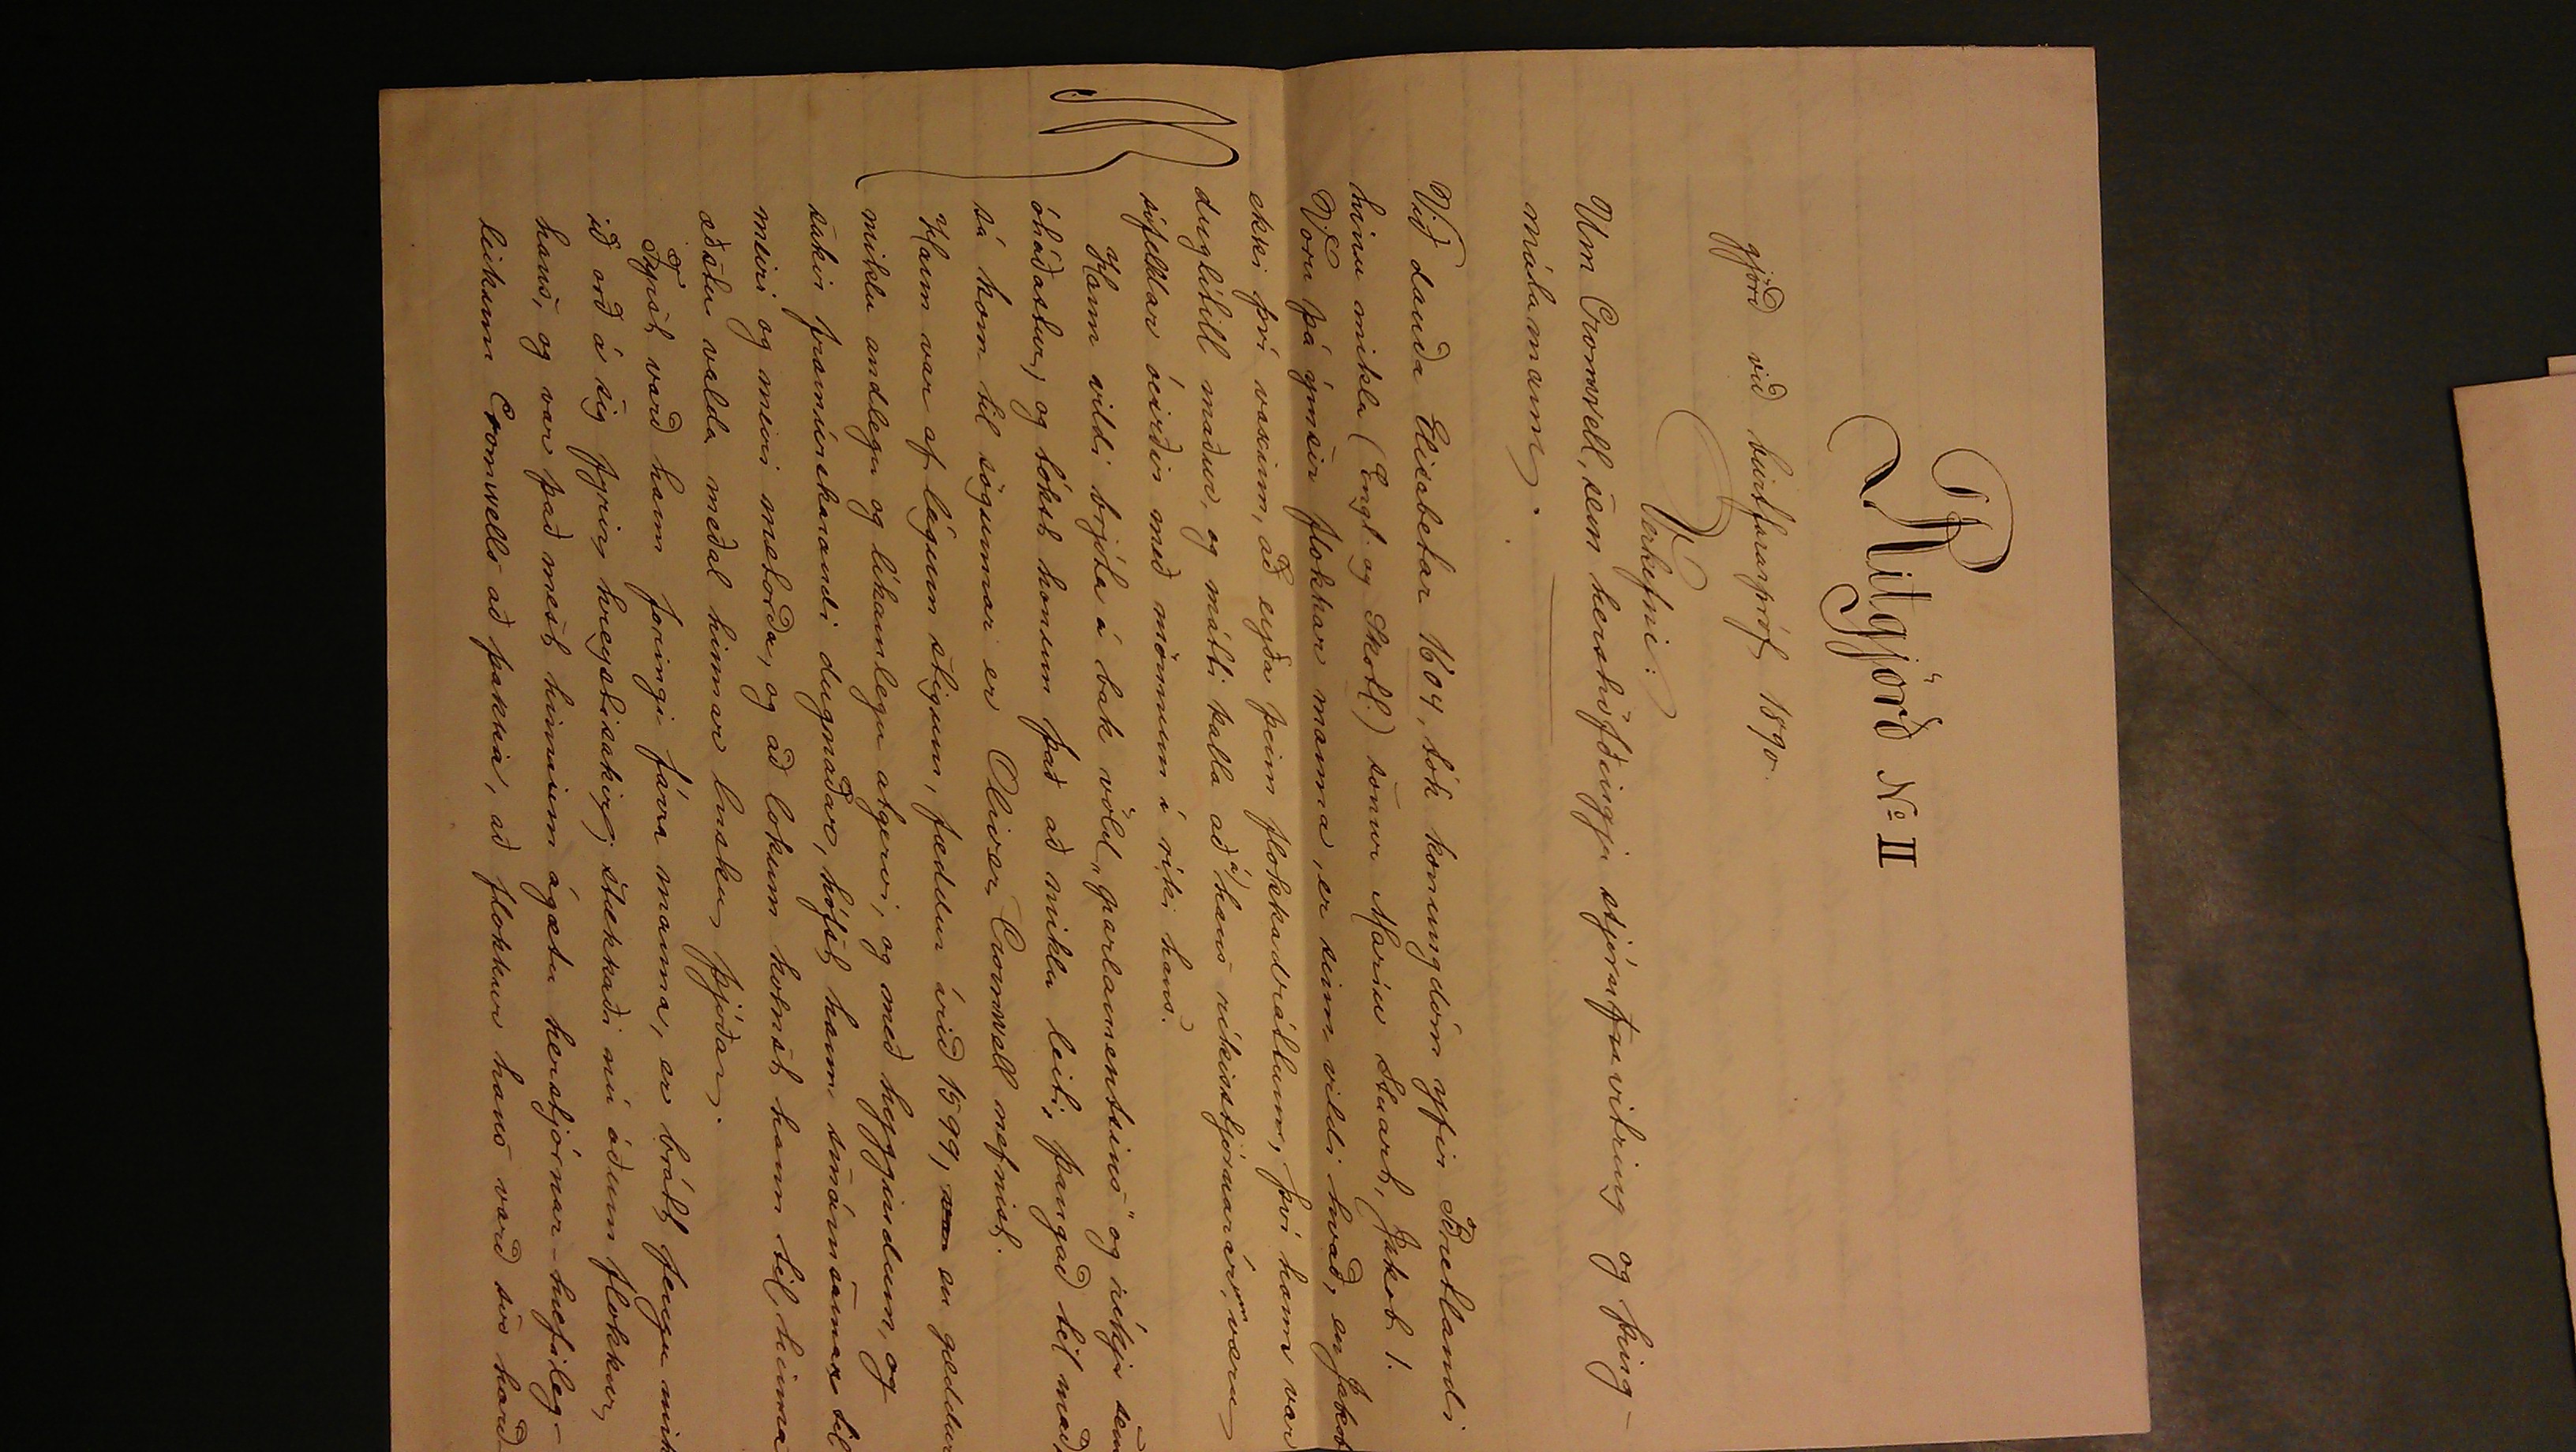 Ritgjörð No II
gjörð við burtfararpróf 1890.
Verkefni:
Um Cromwell, sem hershöfðingja stjórnfrvitring og þing-
málamann.
Við dauða Elisabetar 1604, tók konungdóm yfir Bretlandi
hinu mikla (Engl. og Skotl.) sonur Maríu Stuart, Jakob 1.
Voru þá ýmsir flokkar manna, er sinn vildi hvað, en Jakob
ekki því vaxinn, að eyða þeim flokkadráttum, því hann var
duglítill maður, og mátti kalla að á hans ríkisstjórnarárum væru
sífelldar óeirðir með mönnum í ríki hans.
Hann vildi brjóta á bak völd „parlamentsins" og ríkja sem
óháðastur, og tókst honum það að miklu leiti, þangað til mað
sá kom til sögunnar er Oliver Cromwell nefnist.
Hann var af lágum stigum, fæddur árið 1599, en gæddur
miklu andlegu og líkamlegu atgervi, og með hyggindum, og
sakir framúrskarandi dugnaðar, hófst hann smámsaman til
meiri og meiri metorða, og að lokum kobnst hann til, hinna
æðstu valda meðal hinnar ensku þjóðar.
Fyrst varð hann foringi fárra manna, er brátt fengu mik
ið orð á sig fyrir hreystisakir; stækkaði nú óðum flokkur
hans, og var það mest hinnum ágætu herstjórnar-hæfileg-
leikum Cromwells að þakka, að flokkur hans varð svo harð